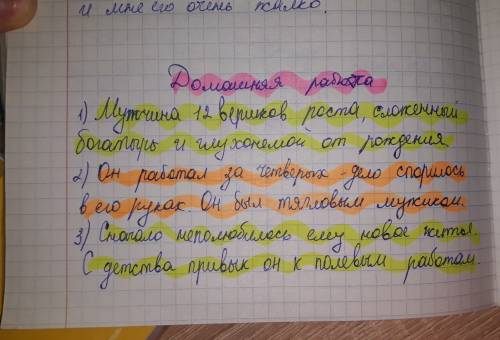 и мне его очень жалко.
Домашняя работа
1) Мужчина 12 вершков роста, сложенный
богатырь и глухонемой от рождения.
2) Он работал за четверых - дело спорилось
в его руках. Он был тягловым мужиком.
3) Сначало неполюбилось ему новое житьё.
С детства привык он к полевым работам.